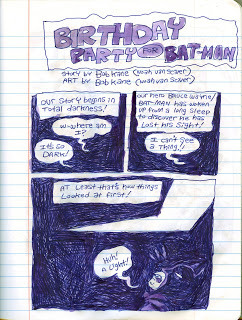 BIRTHDAY
PARTY FOR BAT-MAN
Story by Bob Kane (Noah Van Sciver)
ART by Bob Kane (Noah Van Sciver)
OUR Story begins in
total darkness!
W-where am
I?
It's so
DARK!
Our hero Bruce Wayne/
BAT-MAN has woken
up from a long sleep
to discover he has
Lost his Sight!
I can't see
a thing!!
AT Least that's how things
Looked at first!
Huh!
a Light!